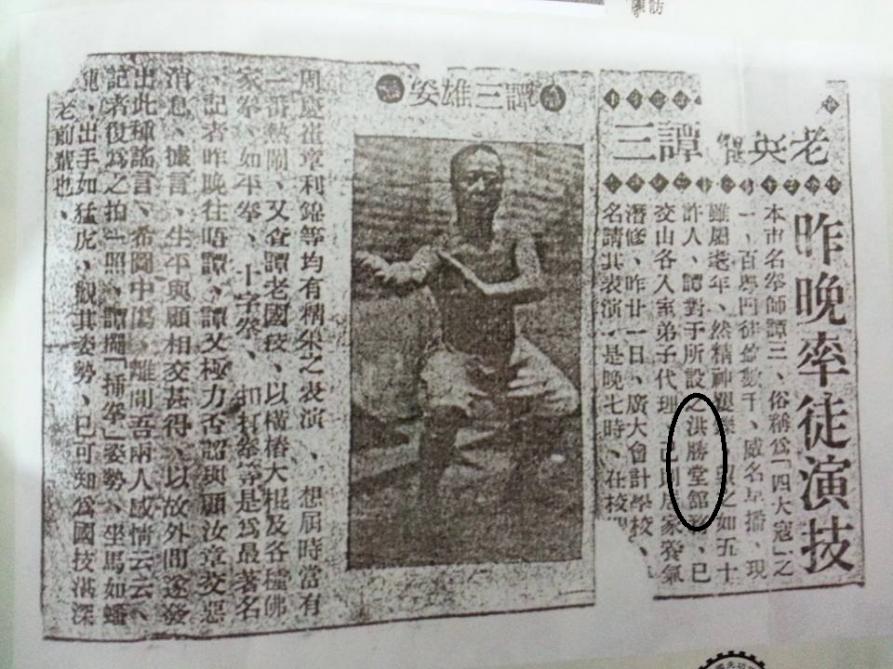 訪
老英雄譚三
昨晚率徒演技
本市名拳師譚三、俗稱爲「四大寇」之
一、百粵門徒數千、威名早播、現
雖屬老年、然精神矍鑠、望之如五十
許人、譚對于所設之洪勝堂館務、已
交山各入室弟子代理、己則居家養氣
潛修、昨廿一日、廣大會計學校、
名請其表演、是晚七時、在校
譚三雄姿
周慶崔章利錦等均有精采之表演、想屆時當有
一番熱鬧、又查譚老國技、以橫樁大棍及各種佛
家拳、如平拳、十字拳、扣打拳等是爲最著名
、記者昨晚往晤譚、譚又極力否認與顧汝章交惡
消息、據言、生平與顧相交甚得、以故外間遂發
出此種謠言、希圖中傷、離間吾兩人感情云云、
記者復爲之拍一照、譚開「插拳」姿勢、坐馬如蟠
龍、出手如猛虎、觀其姿勢、已可知爲國技湛深
老前輩也、